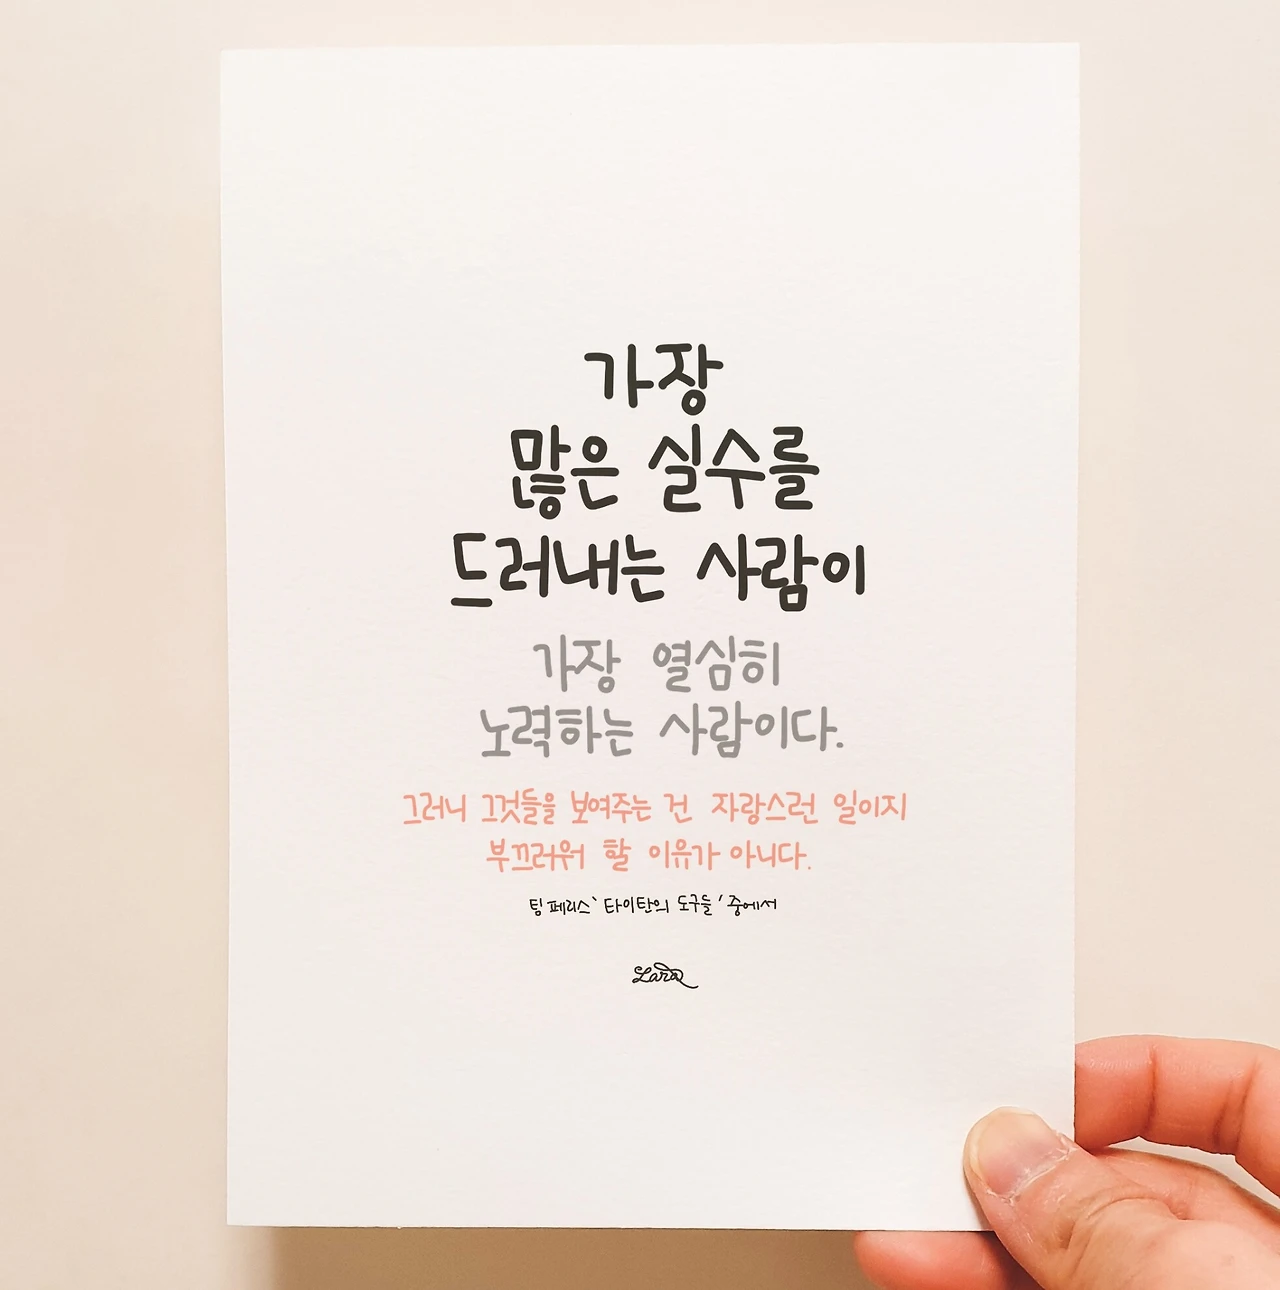 가장
많은 실수를
드러내는 사람이
가장 열심히
노력하는 사람이다.
그러니 그것들을 보여주는 건 자랑스런 일이지
부끄러워 할 이유가 아니다.
팀 페리스 '타이탄의 도구들' 중에서
Lara